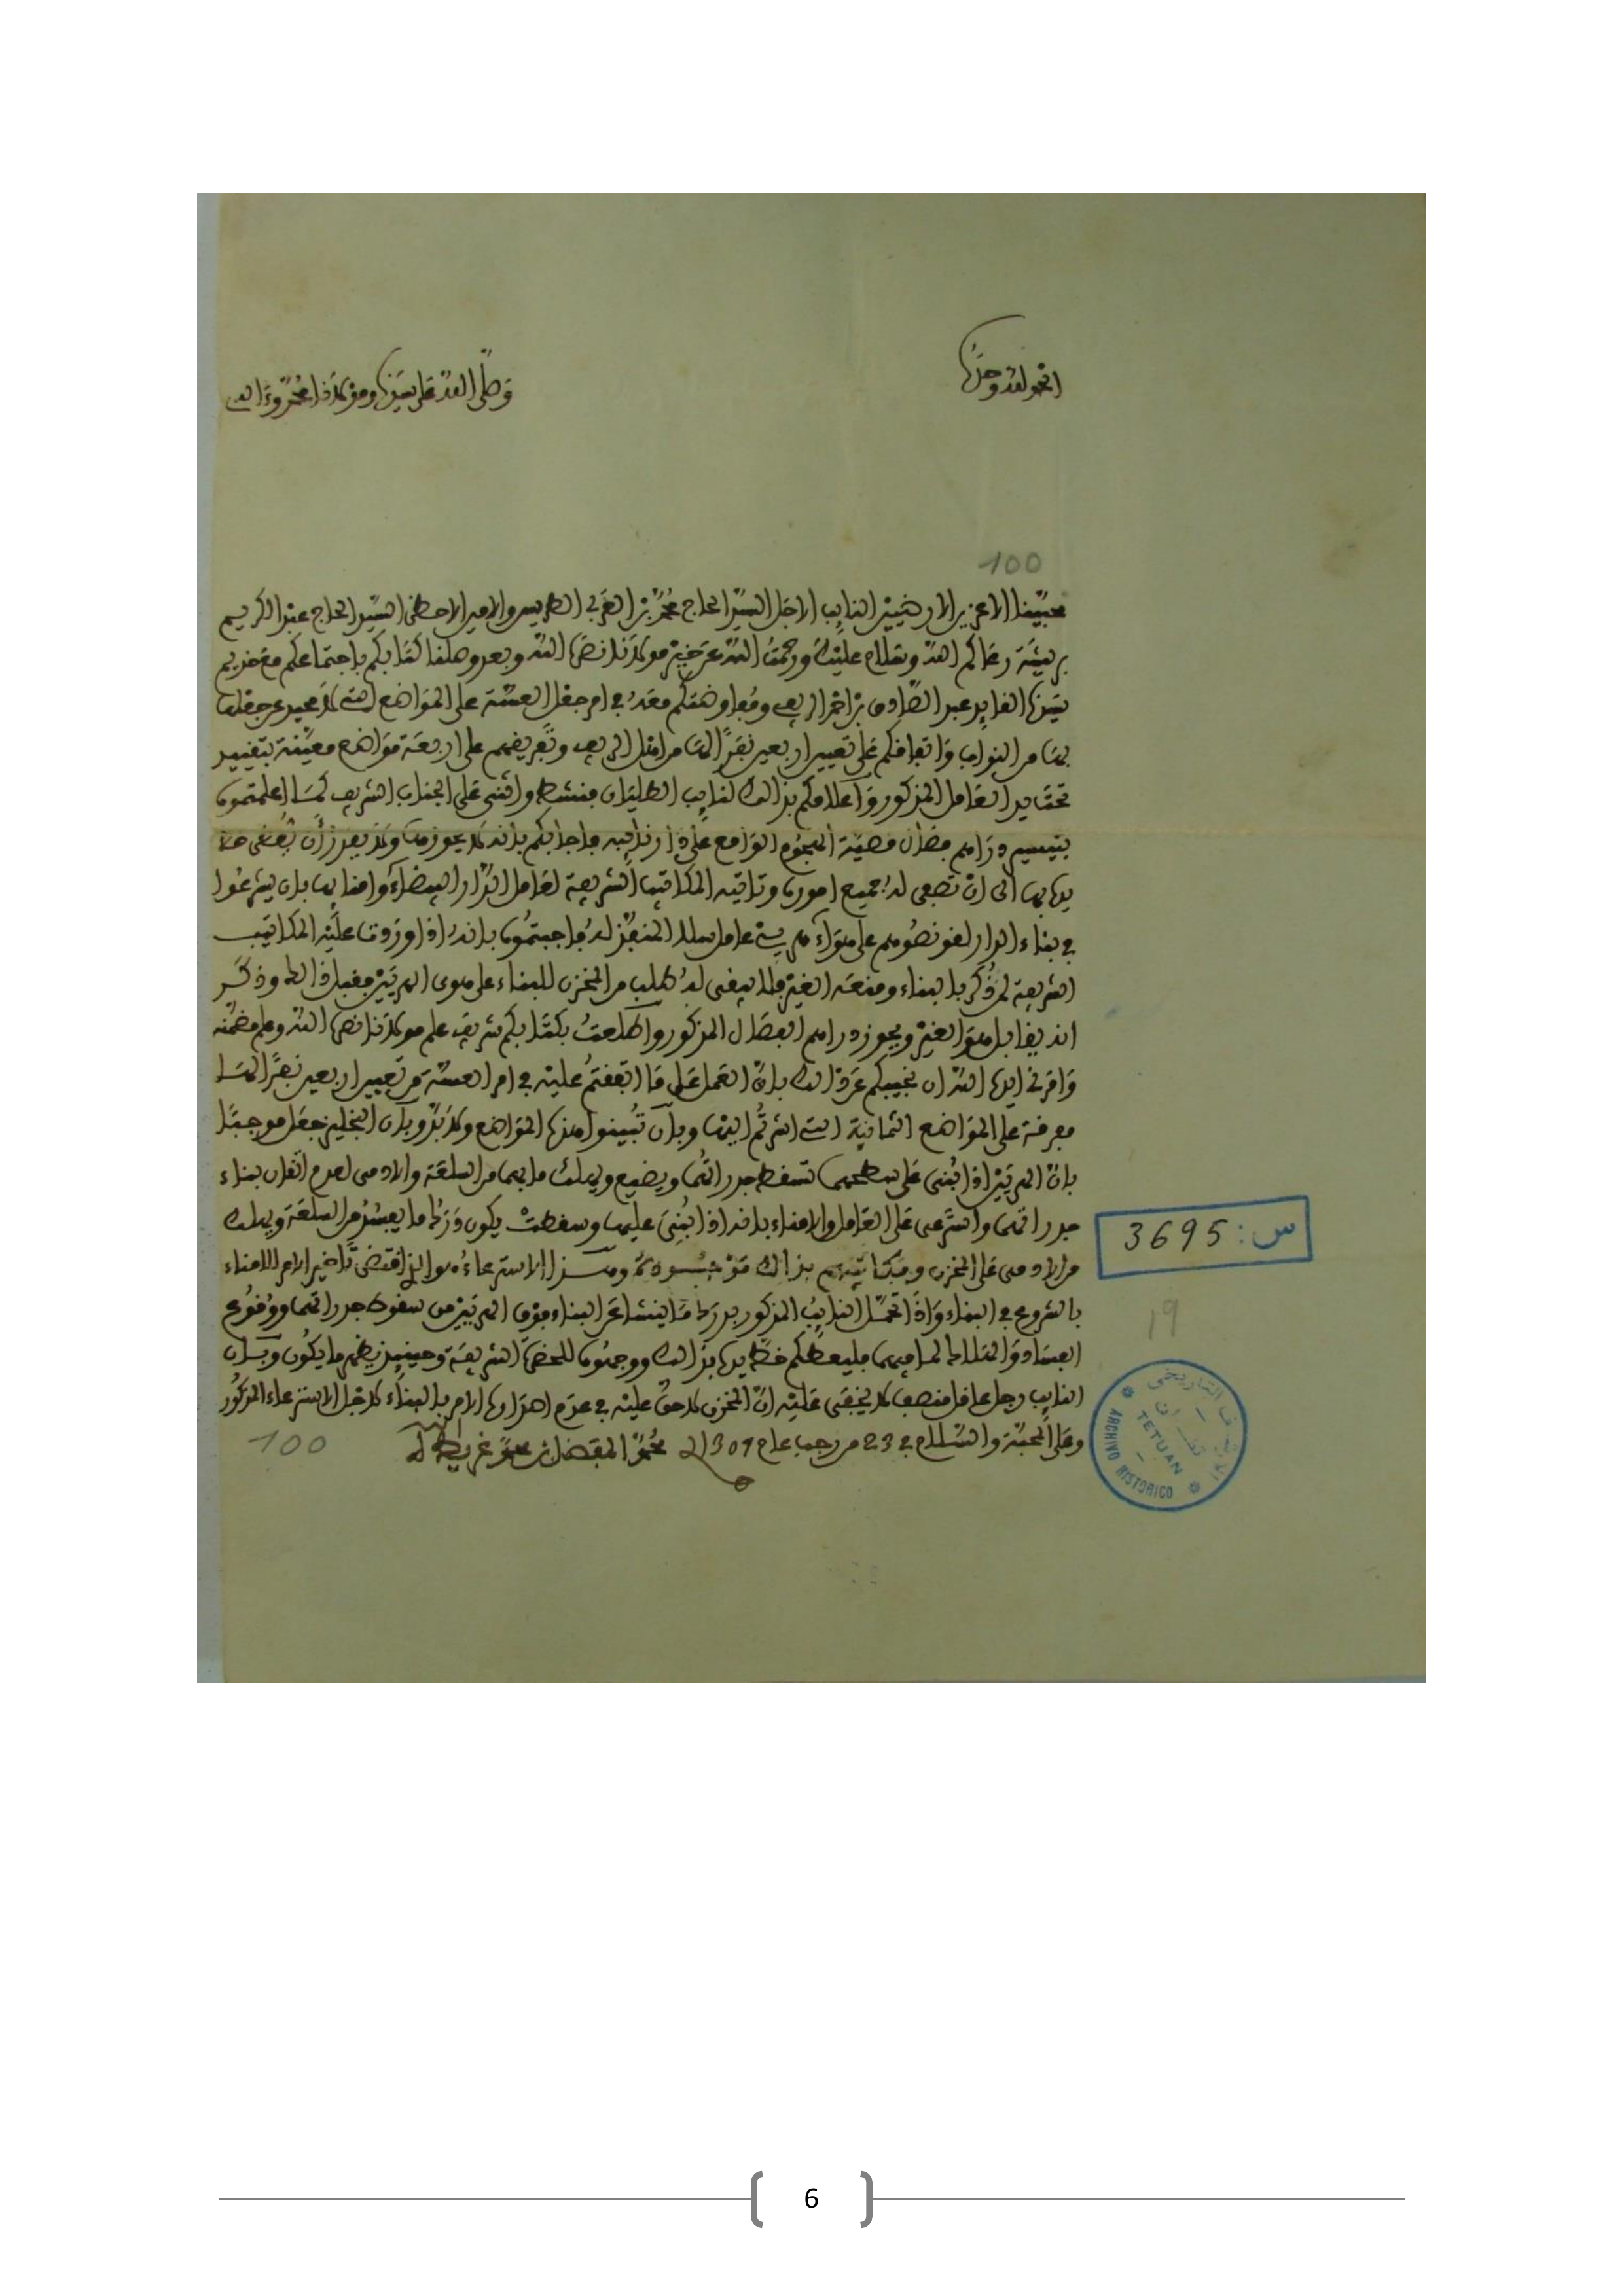 الحمد لله وحده
وصلى الله على سيدنا ومولانا محمد وءاله
100
محبينا الاعزين الارضيين النايب الاجل السيد الحاج محمد بن العربي الطريس والامين الاحظى السيد الحاج عبد الكريم
بريشة رعاكم الله وسلام عليكما ورحمت الله عن خير مولانا نصره الله وبعد وصلنا كتابكم باجتماعكم مع خديم
سيدنا القايد عبد الصادق بن احمد الريفي ومفاوضتكم معه في امر جعل العسة على المواضع التي لا محيد عن جعلها
بها من النواب واتفاقكم على تعيين اربعين نفرا لها من اهل الريف وتفريقهم على اربعة مواضع معينة بتقييد
تحت يد العامل المذكور واعلامكم بذالك لنايب الطليان فنشط واثنى على الجناب الشريف كما اعلمتموه
بتيسير دراهم قضية الهجوم الواقع على دار نايبه فاجابكم بانه لا يحوزها ولا
الى ان تصفى له جميع اموره وتاتيه المكاتيب الشريفة لعامل الدار البيضاء وامنايها بان يشرعوا
في بناء الدار لغونصوهم على هواء فاجبتموه بانه اذا وردت عليه المكاتيب
الشريفة لمن ذكر بالبناء ومنعه الغير فلا يبقى له طلب من المخزن للبناء على هوى الهريين فقبل ذالك وذكر
انه يقابل هو الغير ويحوز دراهم المذكور واطلعت بكتابكم شريف علم مولانا نصره الله وعلم مضمنه
وامرني ايده الله ان نجيبكم عن ذالك بان العمل على ما اتفقتم عليه في امر العسة من تعيين اربعين نفرا لها
مفرقة على المواضع الثمانية التي اشرتم اليها وبان تبينوا هذه المواضع ولا بد وبان النجليز جعل موجبا
بان الهريين اذا بني على سطحهما تسقط جدراتهما ويضيع ويهلك ما بهما من السلعة والادمى لعدم اتقان بناء
جدراتهما واسترعى على العامل والامناء بانه اذا بني عليهما وسقطت يكون درك ما يفسد من السلعة ويهلك
من الادمى على المخزن بذالك وهذا الاسترعاء هو الذي اقتضى تاخير الامر للامناء
بالشروع في البناء واذا تحمل النايب المذكور بدرك ما ينشا عن البناء فوق الهريين من سقوط جدراتهما ووقوع
الفساد والهلاك لما فيهما فليعطكم خط يده بذالك ووجهوه للحضرة الشريفة وحينيذ يظهر ما يكون وبان
النايب رجل عاقل منصف لا يخفى عليه ان المخزن لا حق عليه في عدم اصداره الامر بالبناء لاجل الاسترعاء المذكور
وعلى المحبة والسلام في 23 من رجب عام 1301 محمد المفضل بن محمد غريط
100
س: 3695
19
ARCHIVO HISTORICO
TETUAN
6